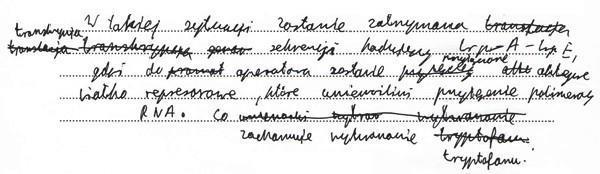 W takiej sytuacji zostanie zatrzymana translacja
transkrypcja
translacja transkrypcja genów sekwencji kodującej trp-A - trp E,
gdyż do promot operatora zostanie przyłączone przyłącza akt aktywne
białko represorowe, które uniemożliwi przyłączenie polimerazy
RNA. Co wytwarzanie
zahamuje wytwarzanie tryptofanu
tryptofanu.